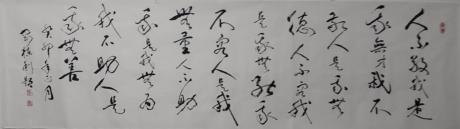 人不敬我是
我無才我不
敬人是我無
德人不容我
是我無能我
不容人是我
無量人不助
我是我無為
我不助人是
我無善
癸卯年二月